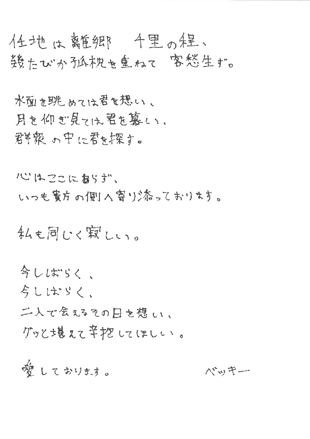 任地は離郷 千里の程、
幾たびか孤枕を重ねて 客愁生ず。
水面を眺めては君を想い、
月を仰ぎ見ては君を慕い、
群衆の中に君を探す。
心はここにあらず、
いつも貴方の側へ寄り添っております。
私も同じく寂しい。
今しばらく、
今しばらく、
二人で会えるその日を想い、
グッと堪えて辛抱してほしい。
愛しております。 ベッキー